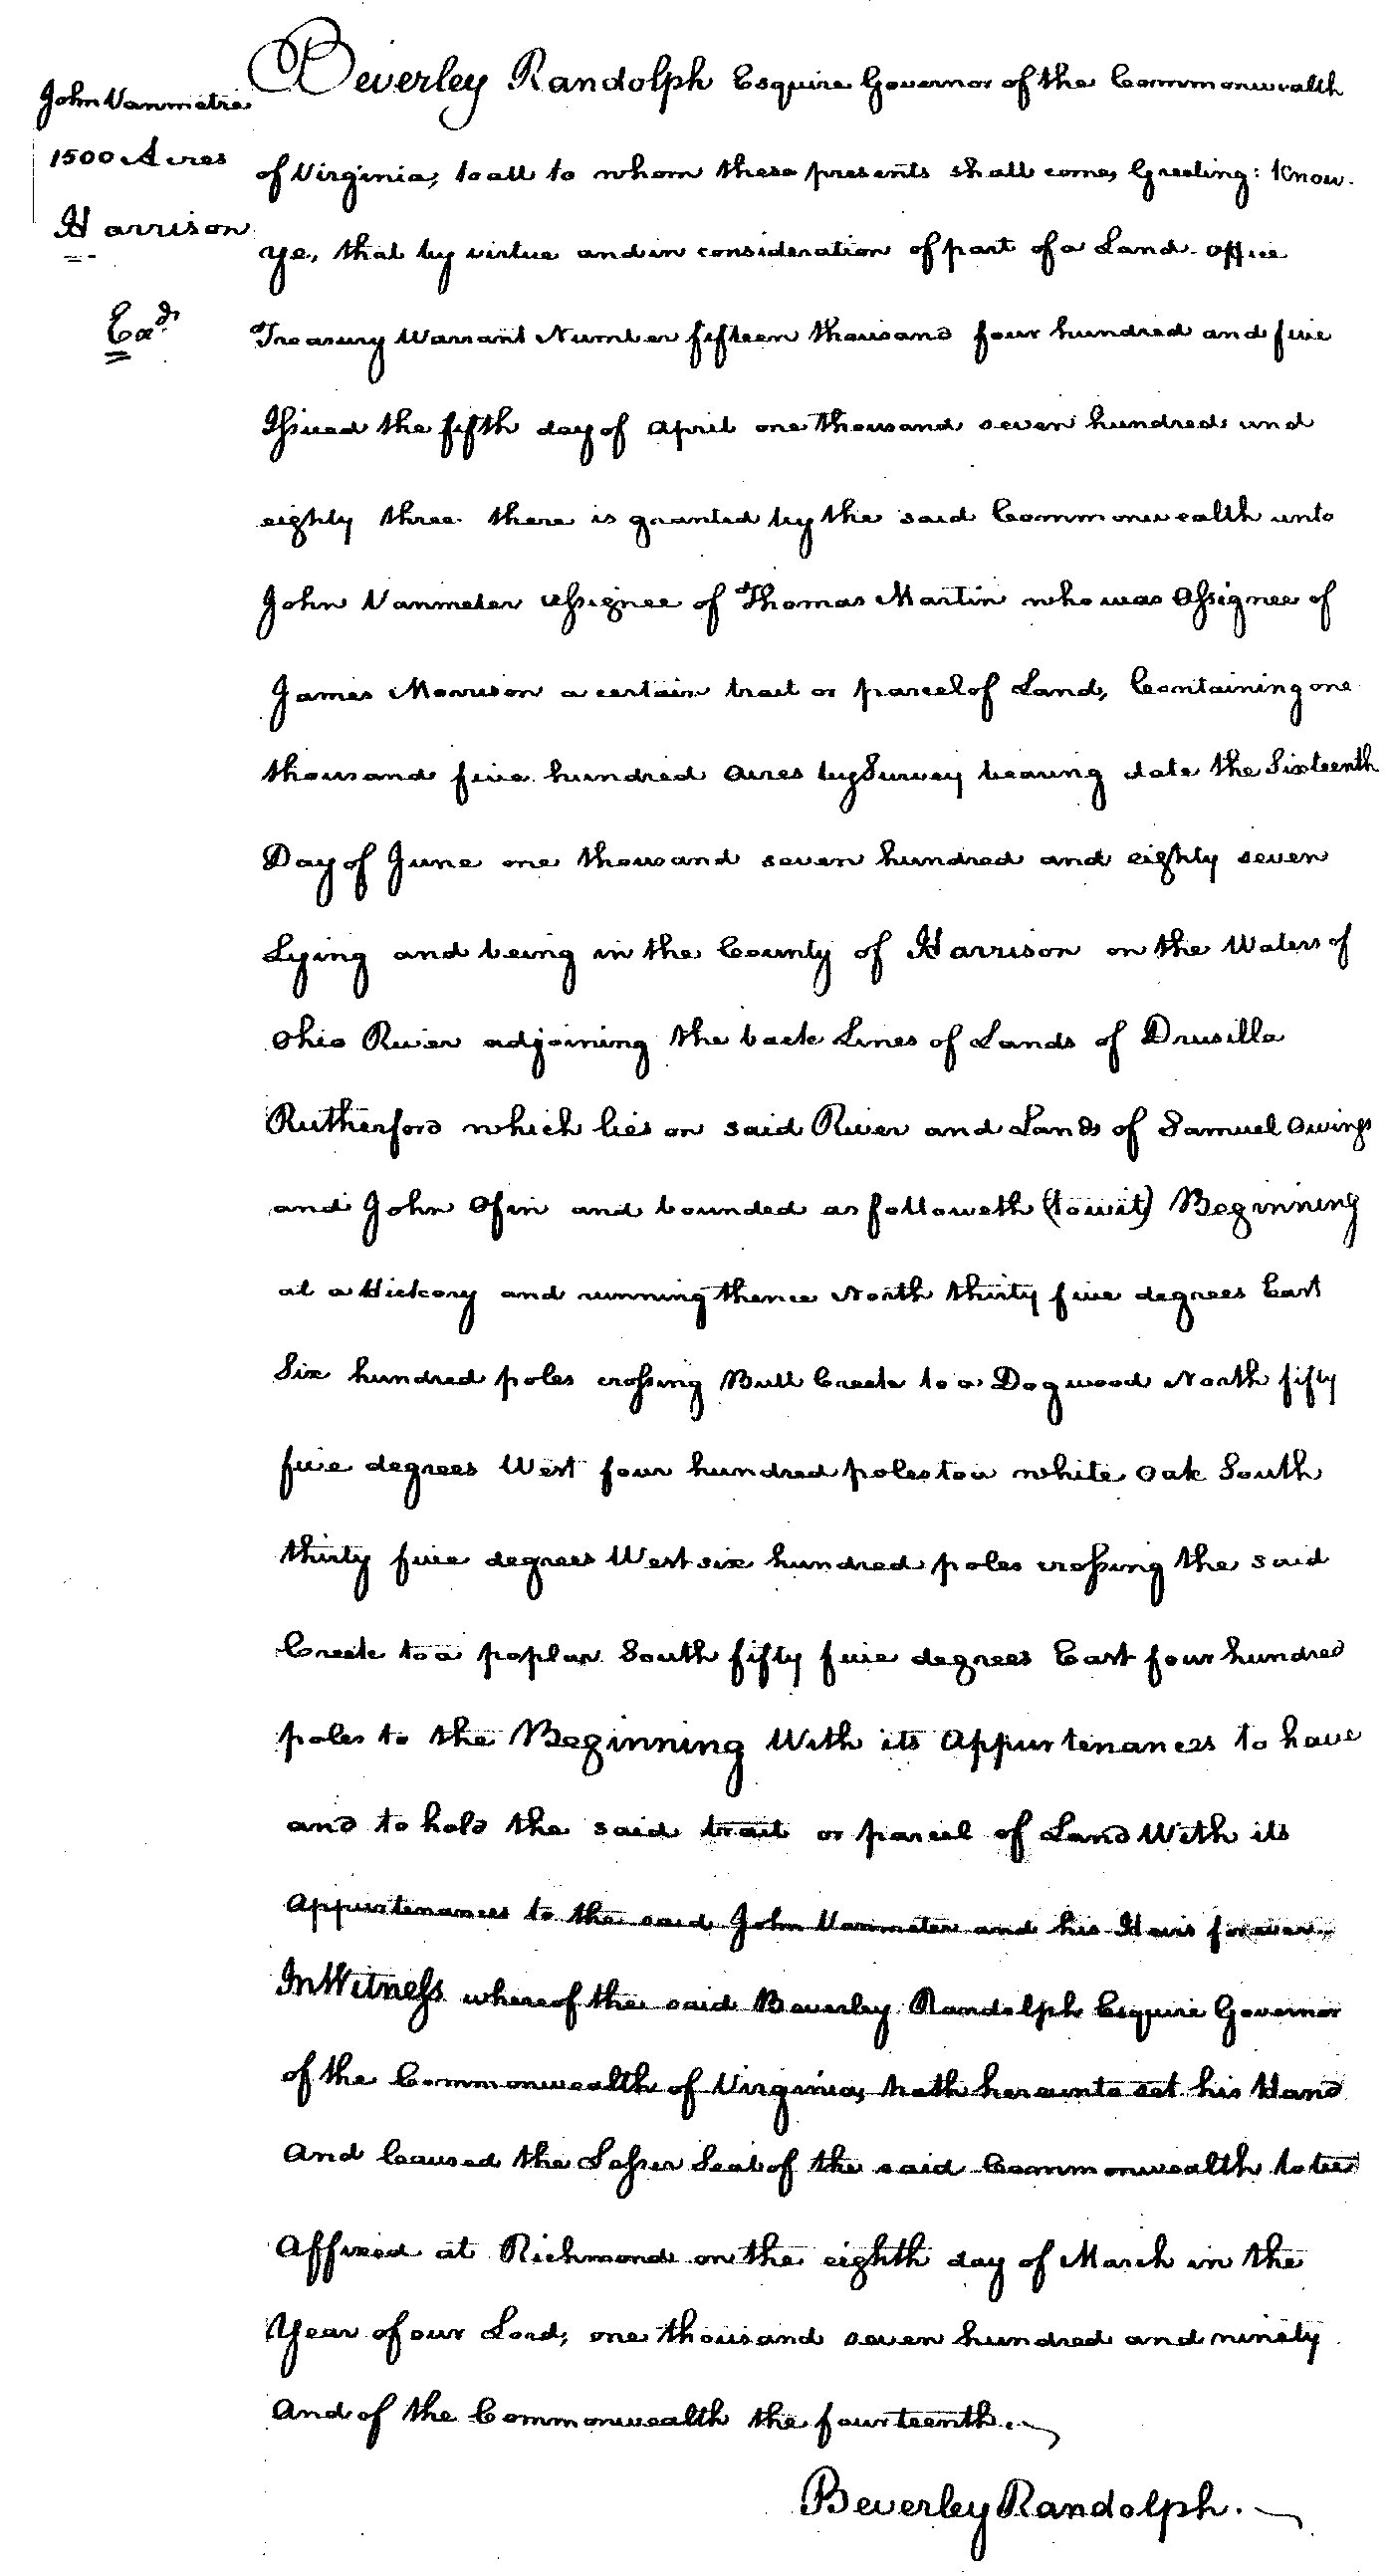 John Vanmetre
1500 Acres
Harrison
Exd.
Beverley Randolph Esquire Governor of the Commonwealth
of Virginia, to all to whom these presents shall come, Greeting: Know
ye, that by virtue and in consideration of part of a Land Office
Treasury Warrant Number fifteen thousand four hundred and five
Issued the fifth day of April one thousand seven hundred and
eighty three there is granted by the said Commonwealth unto
John Vanmeter assignee of Thomas Martin who was Assignee of
James Morrison a certain tract or parcel of Land, Containing one
thousand five hundred Acres by Survey bearing date the Sixteenth
Day of June one thousand seven hundred and eighty seven
Lying and being in the County of Harrison on the Waters of
Ohio River adjoining the back Lines of Lands of Drusilla
Rutherford which lies on said River and Lands of Samuel Owings
and John and bounded as followeth (towit) Beginning
at a Hickory and running thence North thirty five degrees East
Six hundred poles crossing Bull Creek to a Dogwood North fifty
five degrees West four hundred poles to a white Oak South
thirty five degrees West six hundred poles crossing the said
Creek to a poplar South fifty five degrees East four hundred
poles to the Beginning With its Appurtenances to have
and to hold the said tract or parcel of Land With its
Appurtenances to the said John Vanmeter and his Heirs forever.
In Witness whereof the said Beverley Randolph Esquire Governor
of the Commonwealth of Virginia, hath hereunto set his Hand
And Caused the Lesser Seal of the said Commonwealth to be
Affixed at Richmond on the eighth day of March in the
Year of our Lord, one thousand seven hundred and ninety
And of the Commonwealth the fourteenth.
Beverley Randolph.